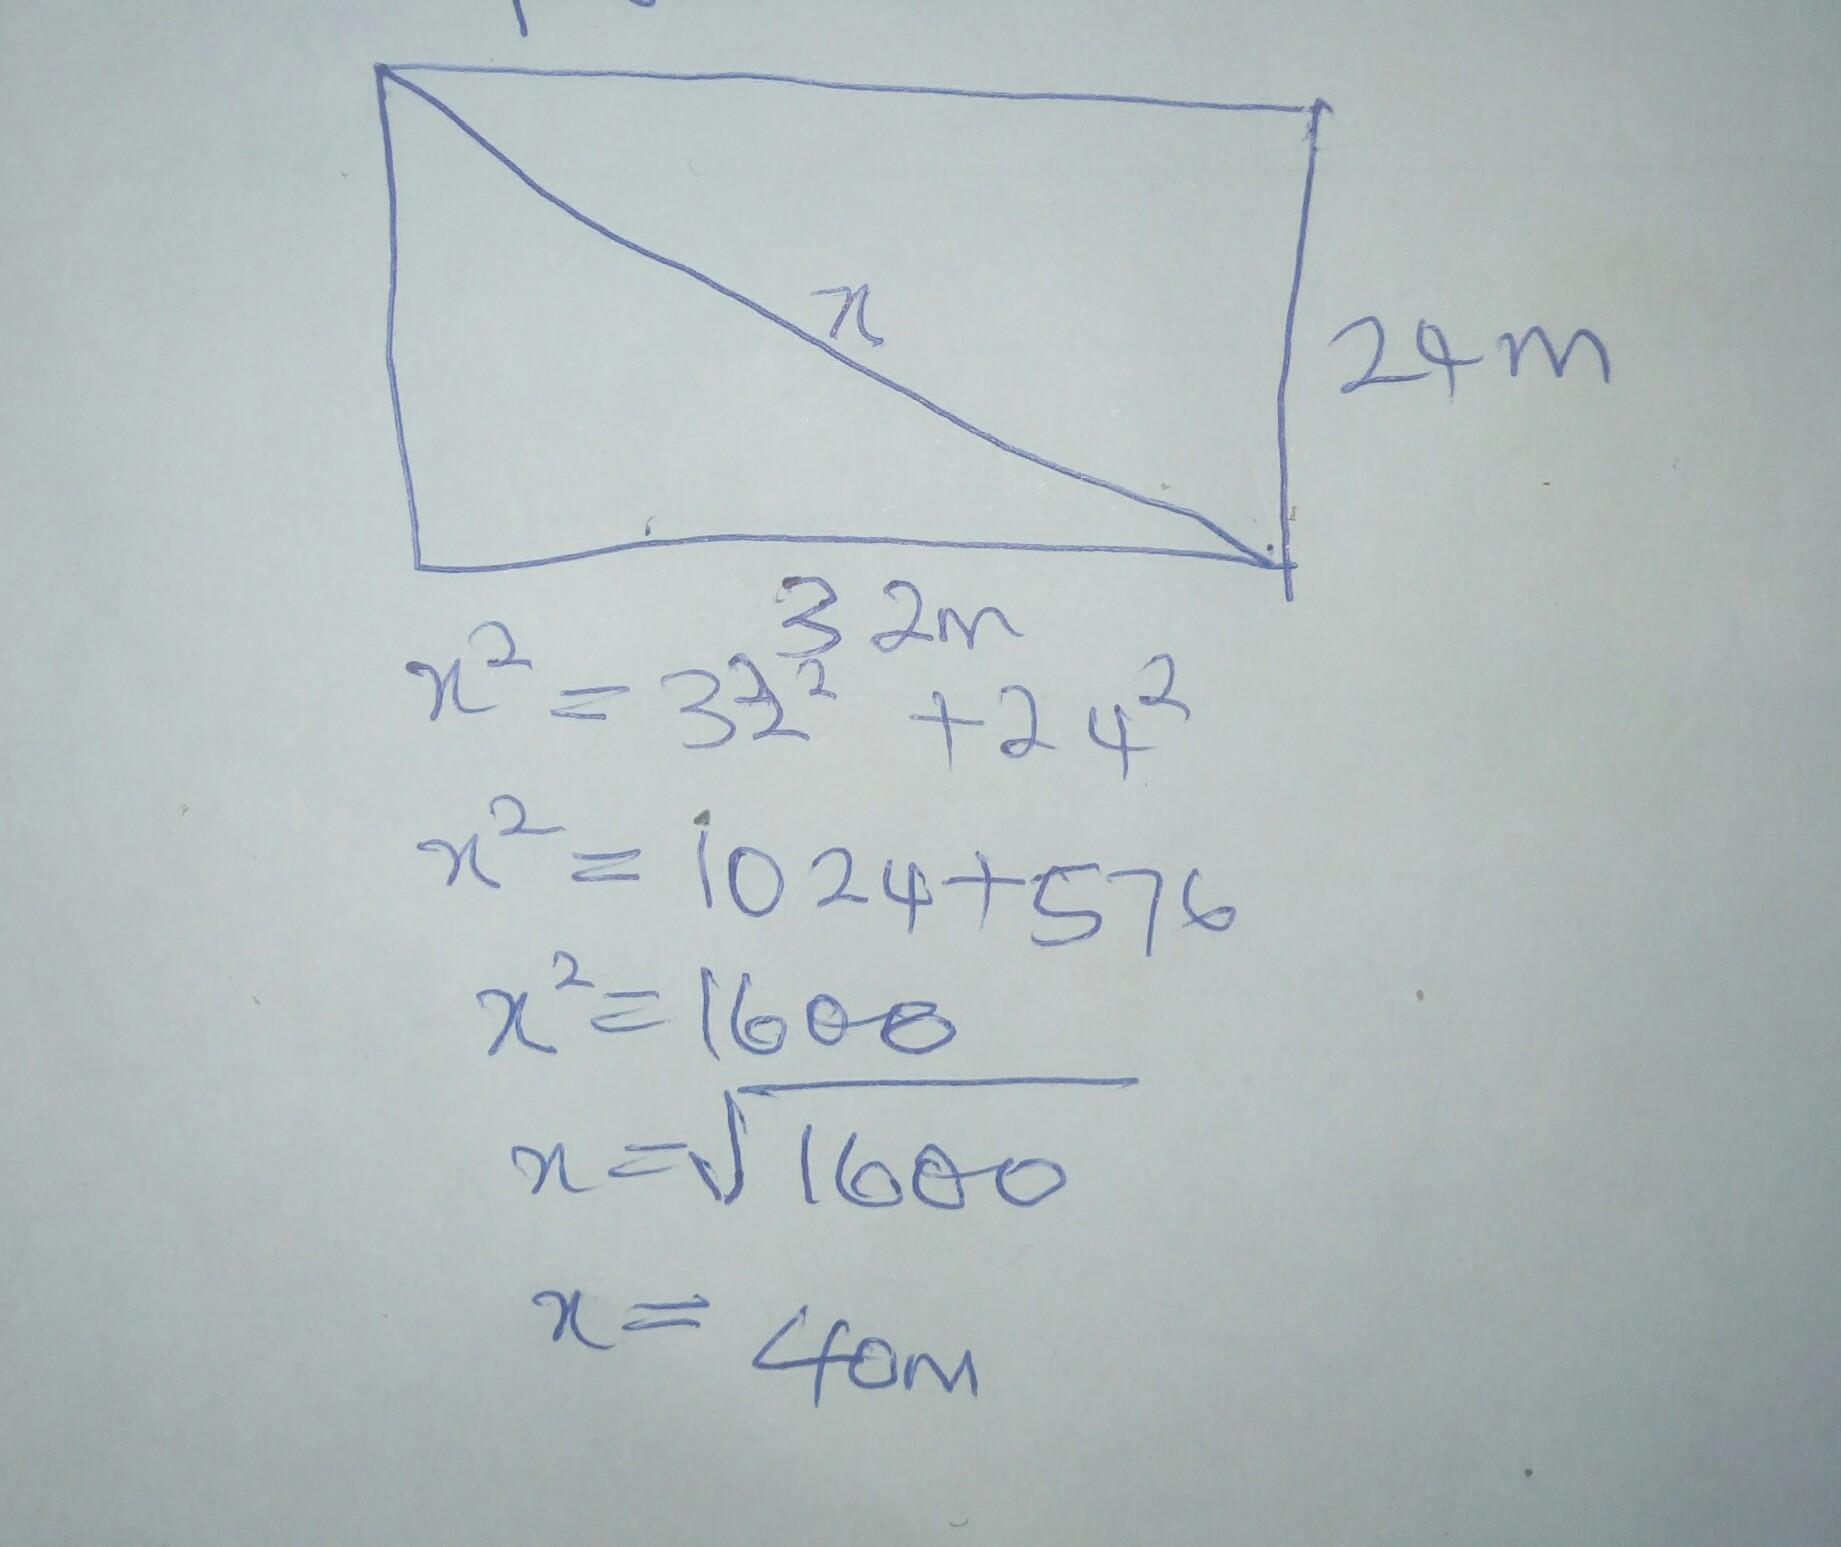 x
24m
32m
x² = 32² + 24²
x² = 1024 + 576
x² = 1600
x = √1600
x = 40m